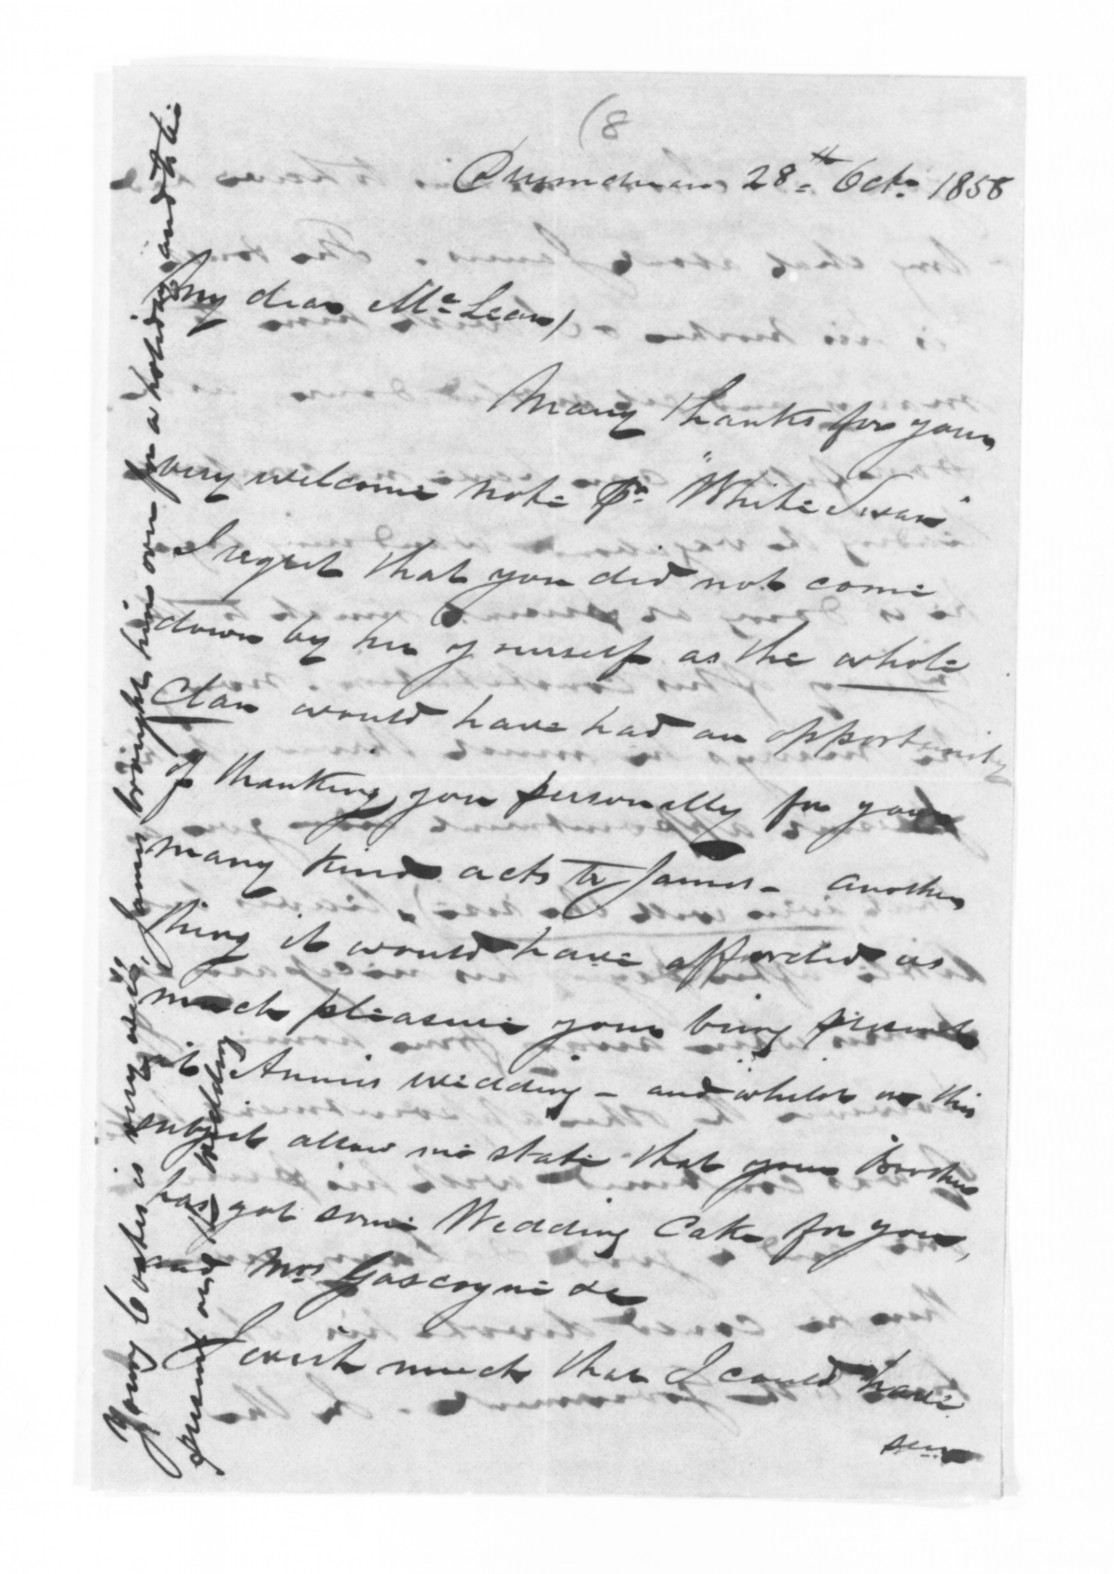 (8
28th Octr 1858
My dear McLean,
Many thanks for your
very welcome note pr "White Swan"
I regret that you did not come
down by her yourself as the whole
Clan would have had an opportunity
of thanking you personally for your
many kind acts to James - another
thing it would have afforded us
much pleasure your being present
at Annies wedding - and whilst on this
subject allow me state that your Brother
has got some Wedding Cake for you,
and Mrs Gascoyne &c
I wish much that I could have
seen
Young Coates is very well, James brought him over for a holiday and to be
present at the wedding